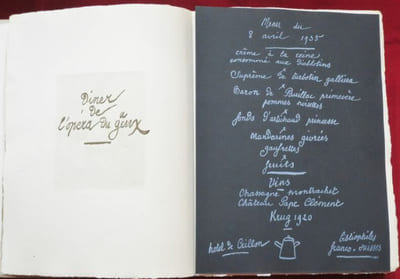 Diner
de
l'opéra du gueux
Menu du
8 avril 1935
crème à la reine
consommé aux diablotins
Suprême de turbotin galliera
Baron de Pauillac primevère
pommes noisettes
fonds d'artichaud princesse
Mandarines givrées
gaufrettes
fruits
Vins
Chassagne montrachet
Château Pape Clément
Krug 1920
hotel de Crillon
bibliophiles
franco-suisses